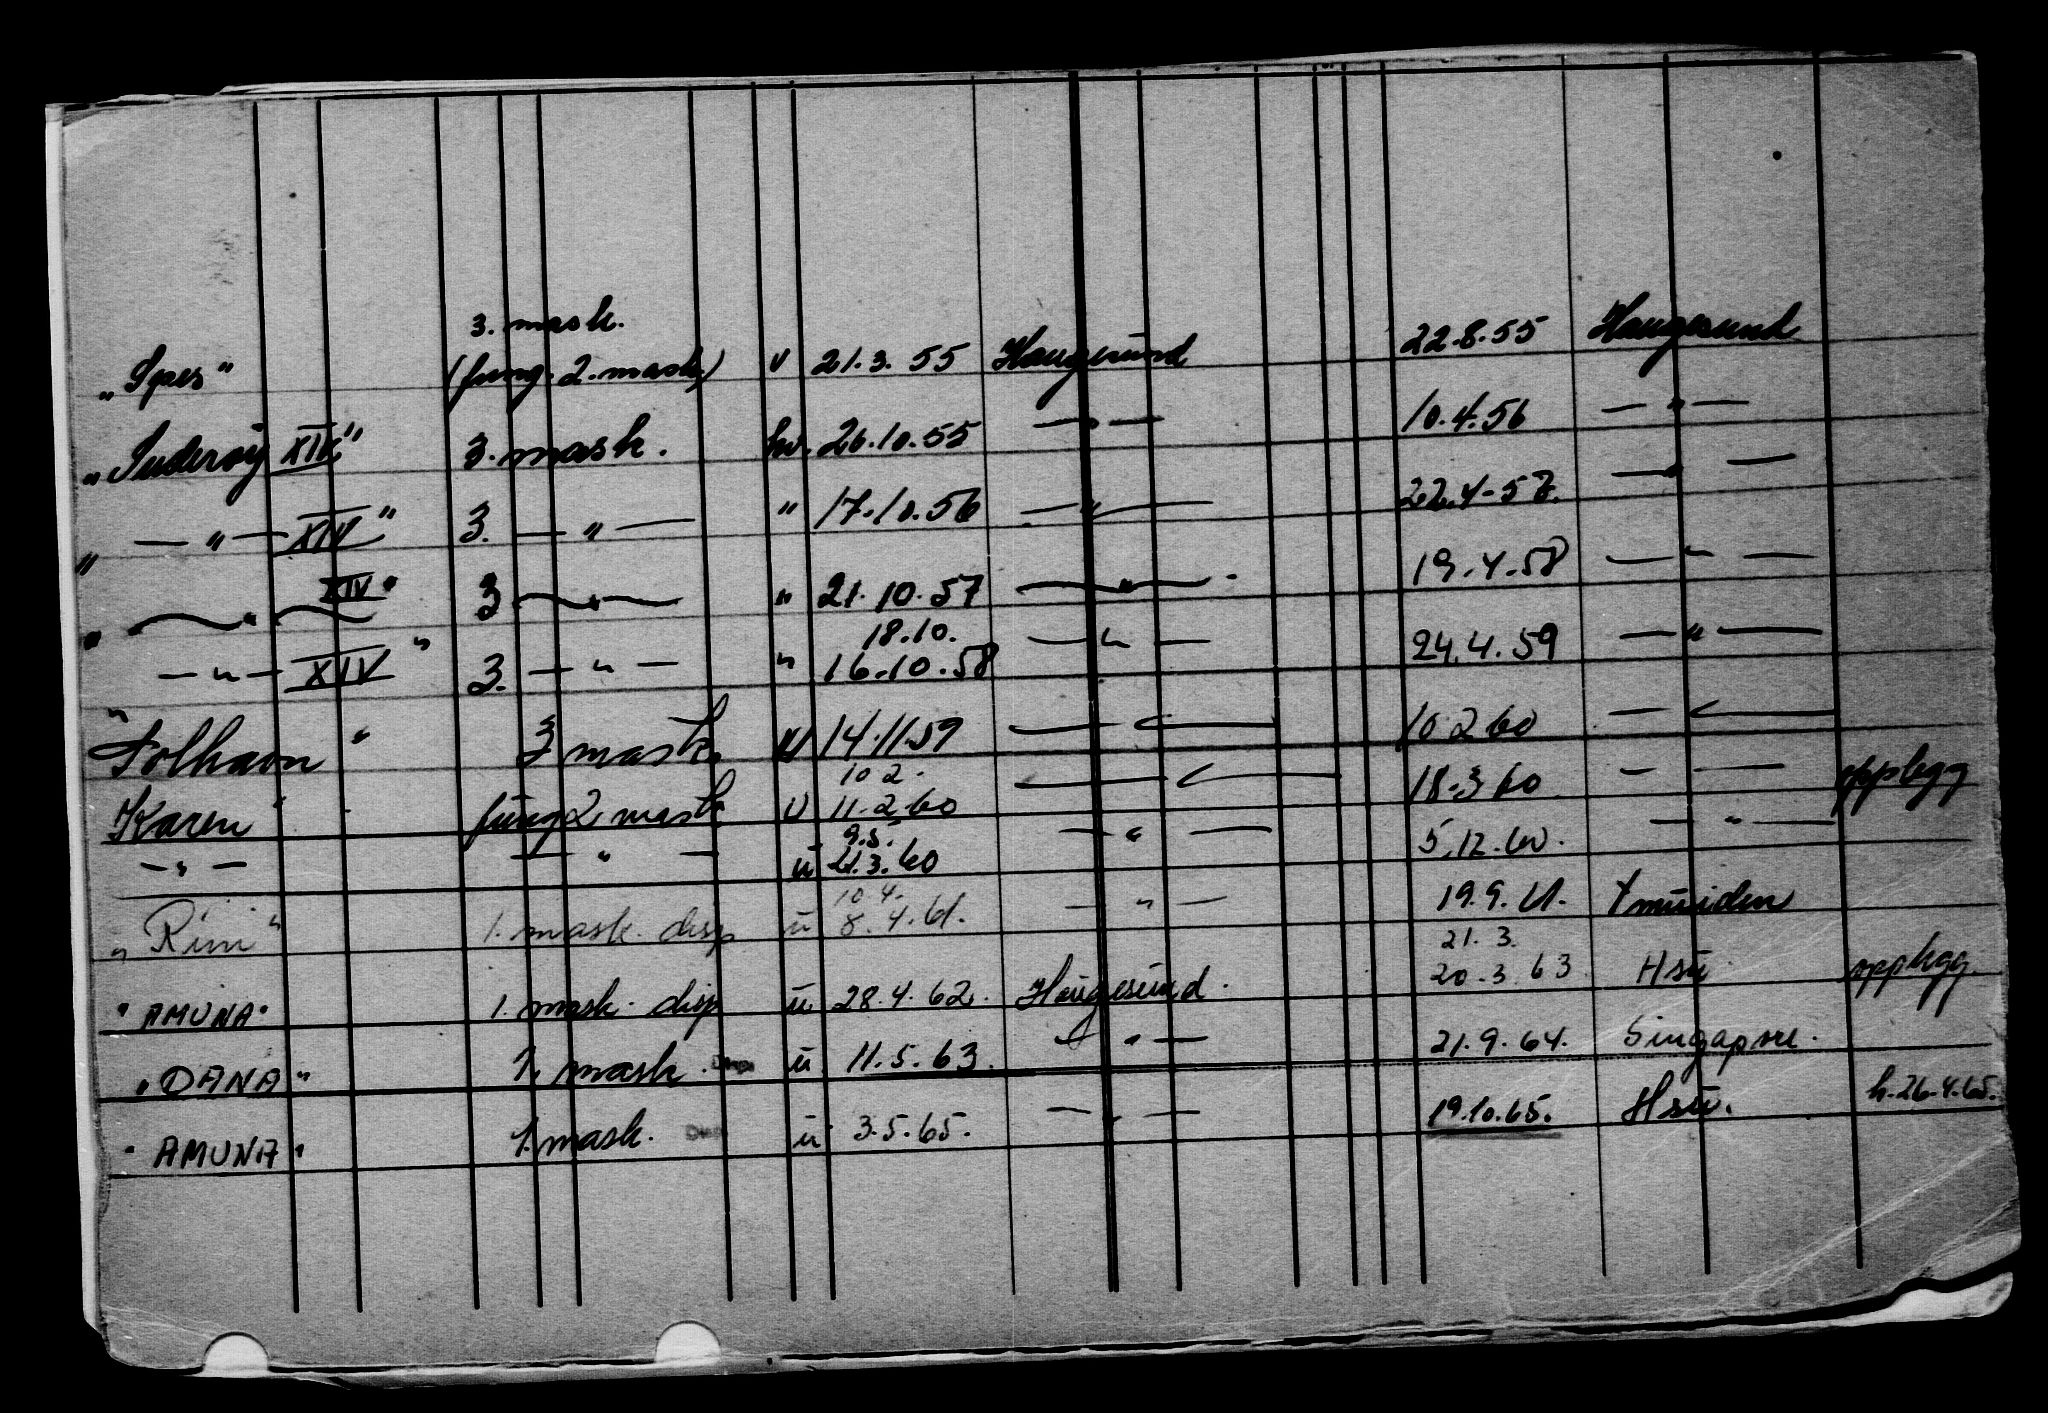 3. mask.
„Spes" (fung. 2. mask.) v 21.3.55 Haugesund 22.8.55 Haugesund
„Suderøy XIV" 3. mask. kv. 26.10.55 — " — 10.4.56 — " —
„ — " — XIV" 3. — " — " 17.10.56 — " — 22.4-57. — " —
„ — " — XIV" 3 — " — " 21.10.57 — " — 19.4.58 — " —
18.10.
„ — " — XIV " 3. — " — " 16.10.58 — " — 24.4.59 — " —
" Solhavn " 3 mask. 14.11.59 — " — 10 2 60 — " —
10 2.
Karen " fung 2 mask u 11.2.60 — " — 18.3 60 — — opplegg
9.5.
— " — — " — u 21.3.60 — " — 5.12.60. — " —
10.4.
„ Rimi " 1. mask. disp u 8.4.61. — " — 19.9.61. Ymuiden
21.3.
" AMUNA " 1. mask. disp u 28.4.62. Haugesund. 20.3.63 Hsu opplegg.
„ DANA " 1. mask. Disp. u 11.5.63. — " — 21.9.64. Singapore.
" AMUNA " 1. mask. Disp u 3.5.65. — " — 19.10.65. Hsu. h.26.4.65.